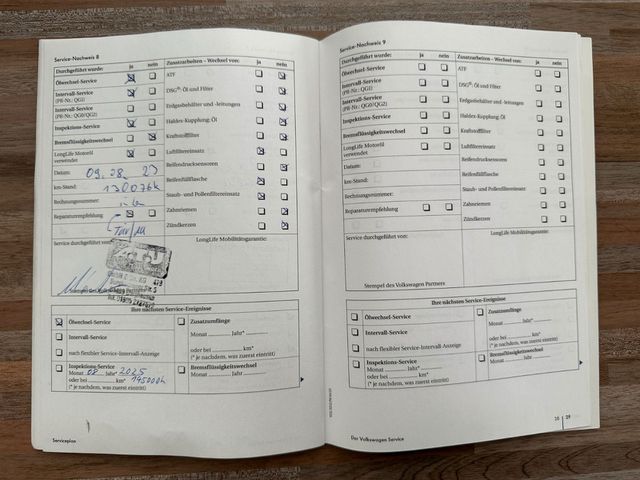 Service-Nachweis 8
Durchgeführt wurde: ja nein
Ölwechsel-Service
Intervall-Service
(PR-Nr.: QG1)
Intervall-Service
(PR-Nr.: QG0/QG2)
Inspektions-Service
Bremsflüssigkeitswechsel
LongLife Motoröl
verwendet
Datum:
km-Stand: 130076k
Rechnungsnummer:
Reparaturempfehlung
Zusatzarbeiten - Wechsel von: ja nein
ATF
DSG®: Öl und Filter
Erdgasbehälter und -leitungen
Haldex-Kupplung: Öl
Kraftstofffilter
Luftfiltereinsatz
Reifendrucksensoren
Reifenfüllflasche
Staub- und Pollenfiltereinsatz
Zahnriemen
Zündkerzen
Service durchgeführt von:
LongLife Mobilitätsgarantie:
Ihre nächsten Service-Ereignisse
Ölwechsel-Service
Intervall-Service
nach flexibler Service-Intervall-Anzeige
Inspektions-Service
Monat 08 Jahr* 2025
oder bei km* 145000k
(* je nachdem, was zuerst eintritt)
Zusatzumfänge
Monat Jahr*
oder bei km*
(* je nachdem, was zuerst eintritt)
Bremsflüssigkeitswechsel
Monat Jahr
Serviceplan
Service-Nachweis 9
Durchgeführt wurde: ja nein
Ölwechsel-Service
Intervall-Service
(PR-Nr.: QG1)
Intervall-Service
(PR-Nr.: QG0/QG2)
Inspektions-Service
Bremsflüssigkeitswechsel
LongLife Motoröl
verwendet
Datum:
km-Stand:
Rechnungsnummer:
Reparaturempfehlung
Zusatzarbeiten - Wechsel von: ja nein
ATF
DSG®: Öl und Filter
Erdgasbehälter und -leitungen
Haldex-Kupplung: Öl
Kraftstofffilter
Luftfiltereinsatz
Reifendrucksensoren
Reifenfüllflasche
Staub- und Pollenfiltereinsatz
Zahnriemen
Zündkerzen
Service durchgeführt von:
LongLife Mobilitätsgarantie:
Stempel des Volkswagen Partners
Ihre nächsten Service-Ereignisse
Ölwechsel-Service
Intervall-Service
nach flexibler Service-Intervall-Anzeige
Inspektions-Service
Monat Jahr*
oder bei km*
(* je nachdem, was zuerst eintritt)
Zusatzumfänge
Monat Jahr*
oder bei km*
(* je nachdem, was zuerst eintritt)
Bremsflüssigkeitswechsel
Monat Jahr
Der Volkswagen Service